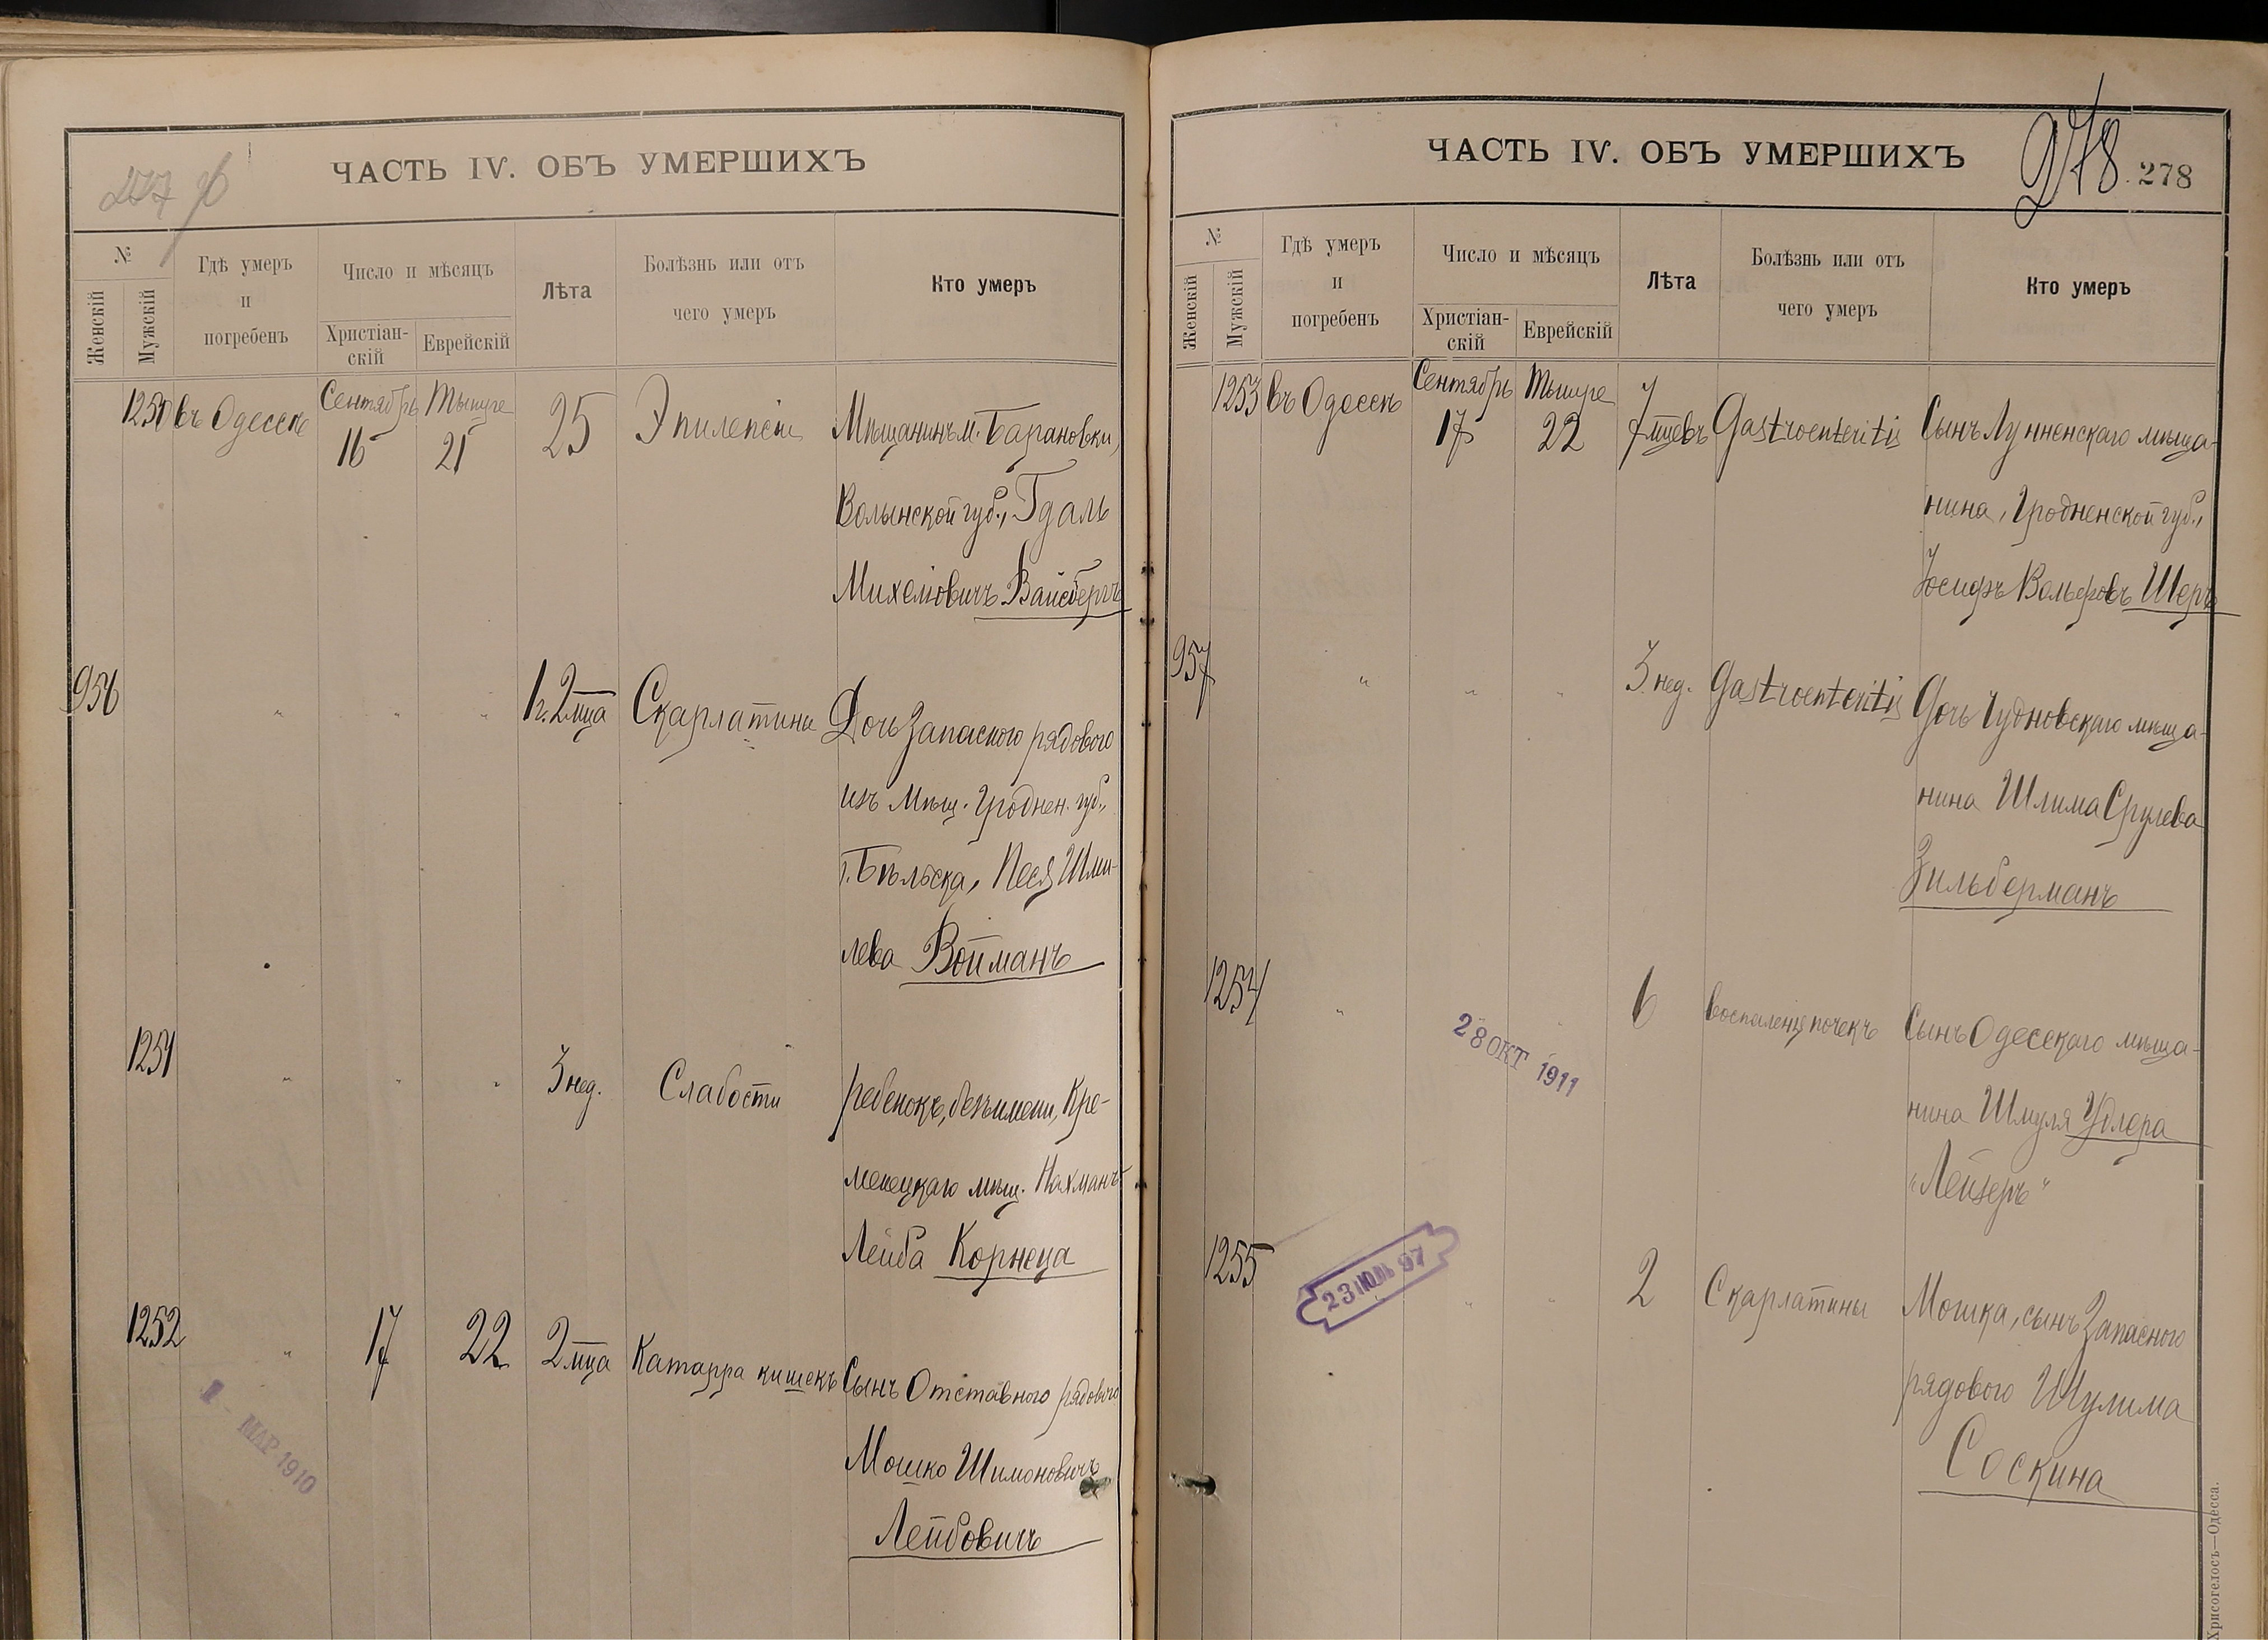 277 об
ЧАСТЬ IV. ОБЪ УМЕРШИХЪ
№
Женскій
Мужскій
Гдѣ умеръ
и
погребенъ
Число и мѣсяцъ
Христіан-
скій
Еврейскій
Лѣта
Болѣзнь или отъ
чего умеръ
Кто умеръ
1250 въ Одессѣ Сентябрь 16 Тышре 21 25 Эпилепсіи Мѣщанинъ м. Барановки,
Волынской губ., Гдаль
Михелiовичъ Вайсбергъ
956 " " " 1 г. 2 мца Скарлатины Дочь Запасного рядового
изъ Мѣщ. Гроднен. губ.,
г. Бѣльска, Песя Шми-
лева Войманъ
1251 " " " 3 нед. Слабости ребенокъ, безъ имени, Кре-
менецкаго мѣщ. Нахманъ
Лейба Корнеца
1252 " 17 22 2 мца Катарра кишекъ Сынъ Отставного рядового
Мошко Шимоновичъ
Лейбовичъ
1 - МАР 1910
ЧАСТЬ IV. ОБЪ УМЕРШИХЪ
278
278
№
Женскій
Мужскій
Гдѣ умеръ
и
погребенъ
Число и мѣсяцъ
Христіан-
скій
Еврейскій
Лѣта
Болѣзнь или отъ
чего умеръ
Кто умеръ
1253 въ Одессѣ Сентябрь 17 Тышре 22 7 7 мцевъ Gastroenteritis Сынъ Лунненскаго мѣща-
нина, Гродненской губ.,
Іосифъ Вольфовъ Шеръ
957 " " " 3 нед. Gastroenteritis Дочь Чудновскаго мѣща-
нина Шлима Срулева
Зильберманъ
1254 " 6 воспаленія почекъ Сынъ Одесскаго мѣща-
нина Шмуля Удлера
"Лейзеръ"
28 ОКТ 1911
1255 " " " 2 Скарлатины Мошка, сынъ Запасного
рядового Шулима
Соскина
23 ІЮЛЬ 97
Хрисогелосъ—Одесса.